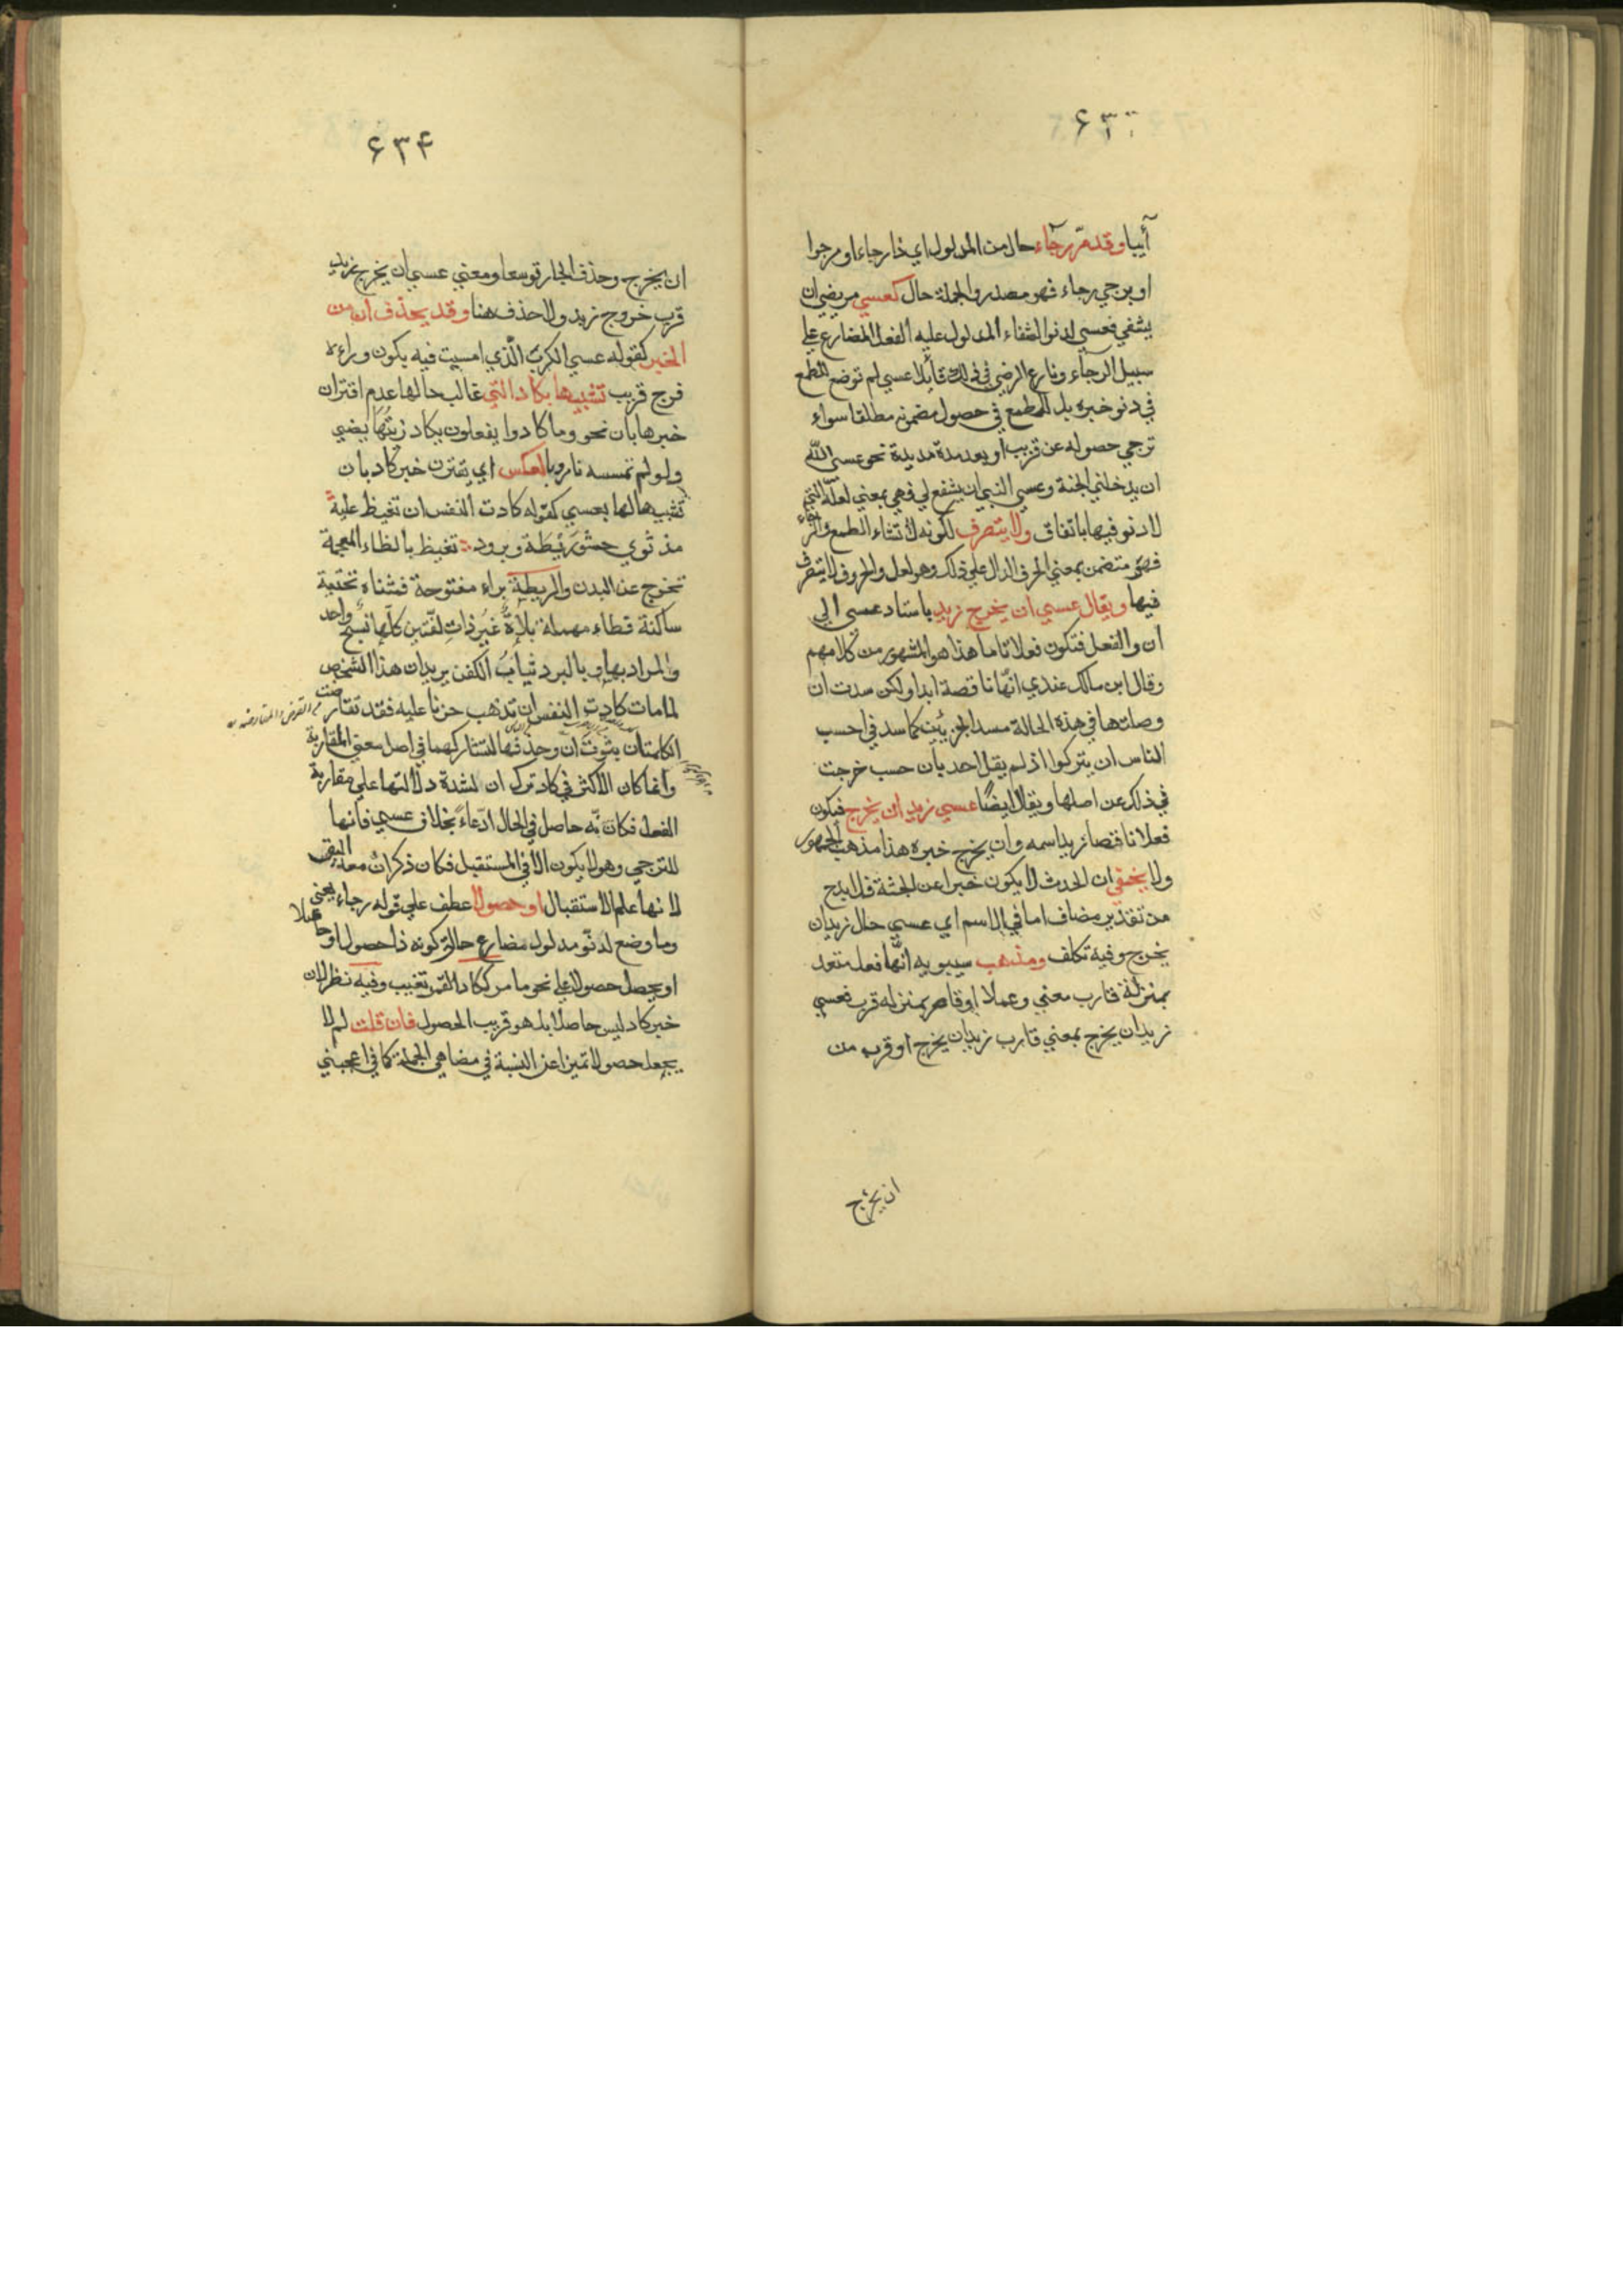 ۶۳
آبيا وقد مرّ رجاء حال من المدلول اي ذا رجاء او مرجوا
او يرجي رجاء فهو مصدر والجملة حال كعسي مريضي ان
يشفي فعسي لدنو الشفاء المدلول عليه الفعل المضارع علي
سبيل الرجاء ونازع الرضي في ذلك قائلا عسي لم توضع للطمع
في دنو خبره بل للطمع في حصول مضمونه مطلقا سواء
ترجي حصوله عن قريب او بعد مدة مديدة نحو عسي الله
ان يدخلني الجنة وعسي النبي ان يشفع لي فهي بمعني لعلّ التي
لا دنو فيها باتفاق ولا يتصرف لكونه لانشاء الطمع والرجاء
فهي متضمن بمعني الحرف الدال علي ذلك وهو لعل والحروف لا يتصرف
فيها ويقال عسي ان يخرج زيد باسناد عسي الي
ان والفعل فتكون فعلا تاما هذا هو المشهور من كلامهم
وقال ابن مالك عندي انّها ناقصة ابدا ولكن سدت ان
وصلتها في هذه الحالة مسد الجزئين كما سد في احسب
الناس ان يتركوا اذ لم يقل احد بان حسب خرجت
في ذلك عن اصلها ويقال ايضًا عسي زيد ان يخرج فيكون
فعلا ناقصا زيد اسمه وان يخرج خبره هذا مذهب الجمهور
ولا يخفي ان الحدث لا يكون خبرا عن الجثة فلا بدح
من تقدير مضاف اما في الاسم اي عسي حال زيد ان
يخرج وفيه تكلف ومذهب سيبويه انّها فعل متعد
بمنزلة قارب معني وعملا او قاصر بمنزله قرب فعسي
زيد ان يخرج بمعني قارب زيد ان يخرج او قرب من
ان يخرج
۶۳۴
ان يخرج وحذف الجار توسعا ومعني عسي ان يخرج زيد
قرب خروج زيد ولا حذف هنا وقد يحذف ان من
الخبر كقوله عسي الكرب الّذي امسيت فيه يكون وراءه
فرج قريب تشبيها بكاد التي غالب حالها عدم اقتران
خبرها بان نحو وما كادوا يفعلون يكاد زيتُها يضيي
ولو لم تمسسه نار وبالعكس اي يقترن خبر كاد بان
تشبيها لها بعسي كقوله كادت النفس ان تفيظ عليهِ
مذ ثوي حشو ريطة وبرود تفيظ بالظاء المعجمة
تخرج عن البدن والريطة براء مفتوحة فمثناة تحتية
ساكنة فطاء مهملة ملاءة غير ذات لفّتين كلّها نسج واحد
والمراد بها وبالبرد ثياب الكفن يريد ان هذا الشخص
لما مات كادت النفس ان تذهب حزنا عليه فقد تقارضت
الكلمتان بثوت ان وحذفها لتشاركهما في اصل معني المقاربة
وانما كان الاكثر في كاد ترك ان لشدة دلالتها علي مقاربة
الفعل فكانّه حاصل في الحال ادّعاءً بخلاف عسي فانها
للترجي وهو لا يكون الا في المستقبل فكان ذكر ان معه اليق
لانها علم الاستقبال او حصولا عطف علي قوله رجاء يعني
وما وضع لدنّو مدلول مضارع حالة كونه ذا حصول او حاصلا
او يحصل حصولا علي نحو ما مر ككاد القمر تغيب وفيه نظر لان
خبر كاد ليس حاصلا بل هو قريب الحصول فان قلت لم لا
يجعل حصولا تميزا عن النسبة في مضاهي الجملة كما في اعجبني